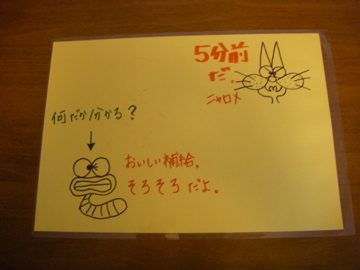 5分前
だ。
ニャロメ
何だか分かる？
おいしい補給。
そろそろだよ。